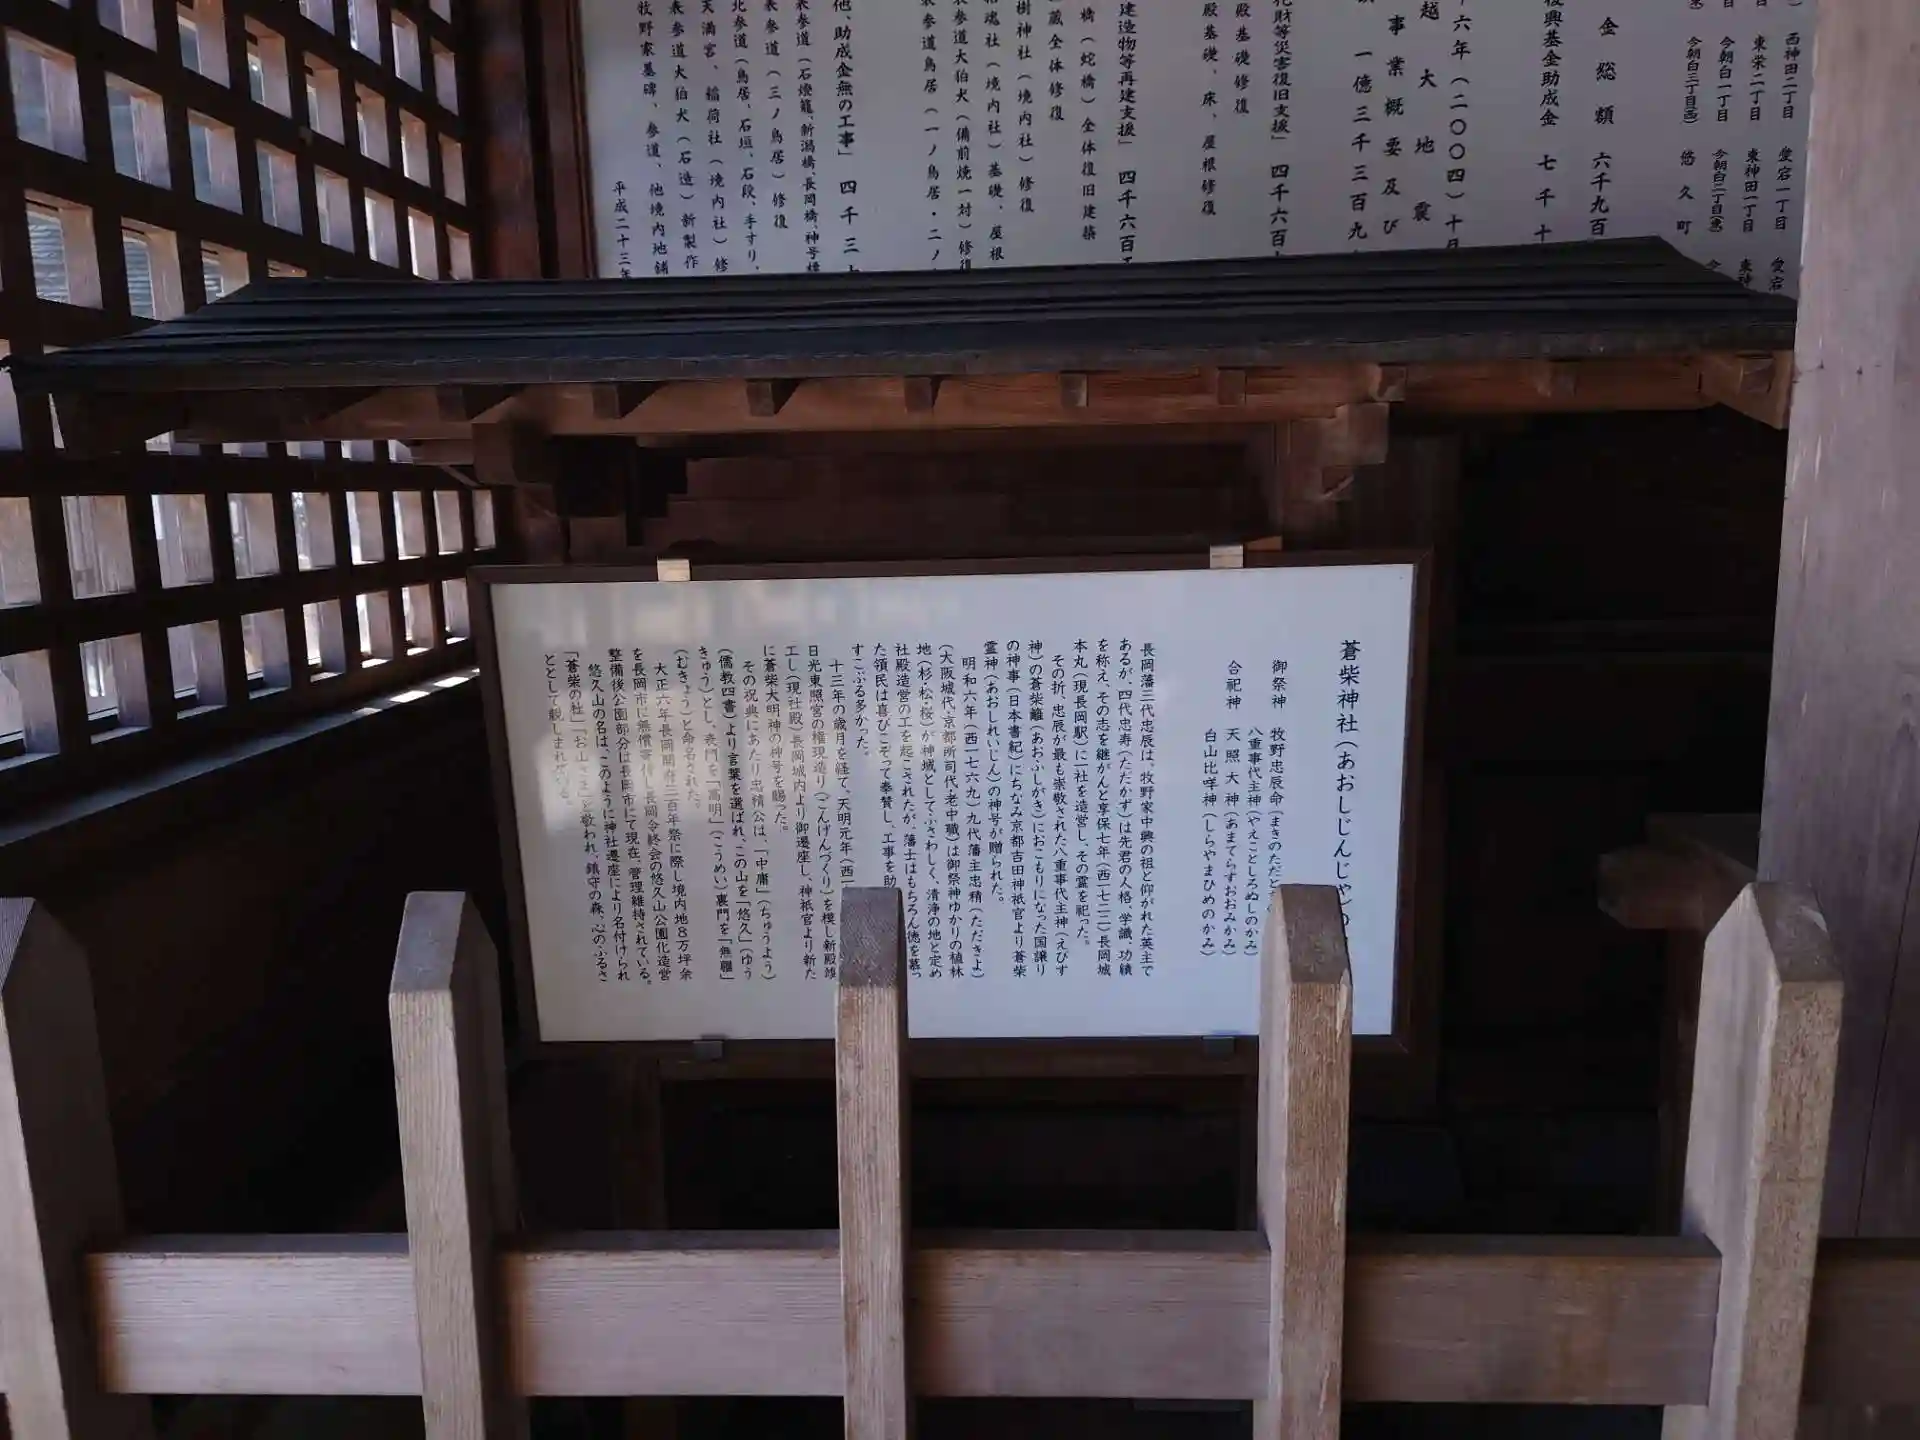 西神田二丁目 愛宕一丁目 愛宕
東栄二丁目 東神田一丁目 東神
今朝白一丁目 今朝白二丁目 今
今朝白三丁目 悠久町
金総額 六千九百
復興基金助成金 七千十
十六年(二〇〇四)十月
越大地震
事業概要及び
一億三千三百九
化財等災害復旧支援」 四千六百
殿基礎修復
殿基礎、床、屋根修復
建造物等再建支援」 四千六百
橋(蛇橋)全体復旧建築
蔵全体修復
樹神社(境内社)修復
招魂社(境内社)基礎、屋根
表参道大狛犬(備前焼一対)修復
表参道鳥居(一ノ鳥居・二ノ
他、助成金無の工事」 四千三
表参道(石燈籠、新潟橋、長岡橋、神号標
表参道(三ノ鳥居)修復
北参道(鳥居、石垣、石段、手すり、
天満宮、稲荷社(境内社)修
表参道大狛犬(石造)新製作
牧野家墓碑、参道、他境内地舗
平成二十三年
蒼柴神社(あおしじんじゃ)の
御祭神 牧野忠辰命(まきのただと
八重事代主神(やえことしろぬしのかみ)
合祀神 天照大神(あまてらすおおみかみ)
白山比咩神(しらやまひめのかみ)
長岡藩三代忠辰は、牧野家中興の祖と仰がれた英主で
あるが、四代忠寿(ただかず)は先君の人格、学識、功績
を称え、その志を継がんと享保七年(西一七二二)長岡城
本丸(現長岡駅)に一社を造営し、その霊を祀った。
その折、忠辰が最も崇敬された八重事代主神(えびす
神)の蒼柴籬(あおふしがき)におこもりになった国譲り
の神事(日本書紀)にちなみ京都吉田神祇官より蒼柴
霊神(あおしれいじん)の神号が贈られた。
明和六年(西一七六九)九代藩主忠精(ただきよ)
(大阪城代・京都所司代・老中職)は御祭神ゆかりの植林
地(杉・松・桜)が神域としてふさわしく、清浄の地と定め
社殿造営の工を起こされたが、藩士はもちろん徳を慕っ
た領民は喜びこぞって奉賛し、工事を助
すこぶる多かった。
十三年の歳月を経て、天明元年(西一
日光東照宮の権現造り(ごんげんづくり)を模し新殿竣
工し(現社殿)長岡城内より御遷座し、神祇官より新た
に蒼柴大明神の神号を賜った。
その祝典にあたり忠精公は、「中庸」(ちゅうよう)
(儒教四書)より言葉を選ばれ、この山を「悠久」(ゆう
きゅう)とし、表門を「高明」(こうめい)裏門を「無疆」
(むきょう)と命名された。
大正六年長岡開府三百年祭に際し境内地8万坪余
を長岡市に無償寄付し長岡令終会の悠久山公園化造営
整備後公園部分は長岡市にて現在、管理維持されている。
悠久山の名は、このように神社遷座により名付けられ
「蒼柴の杜」「お山さま」と敬われ、鎮守の森、心のふるさ
ととして親しまれている。